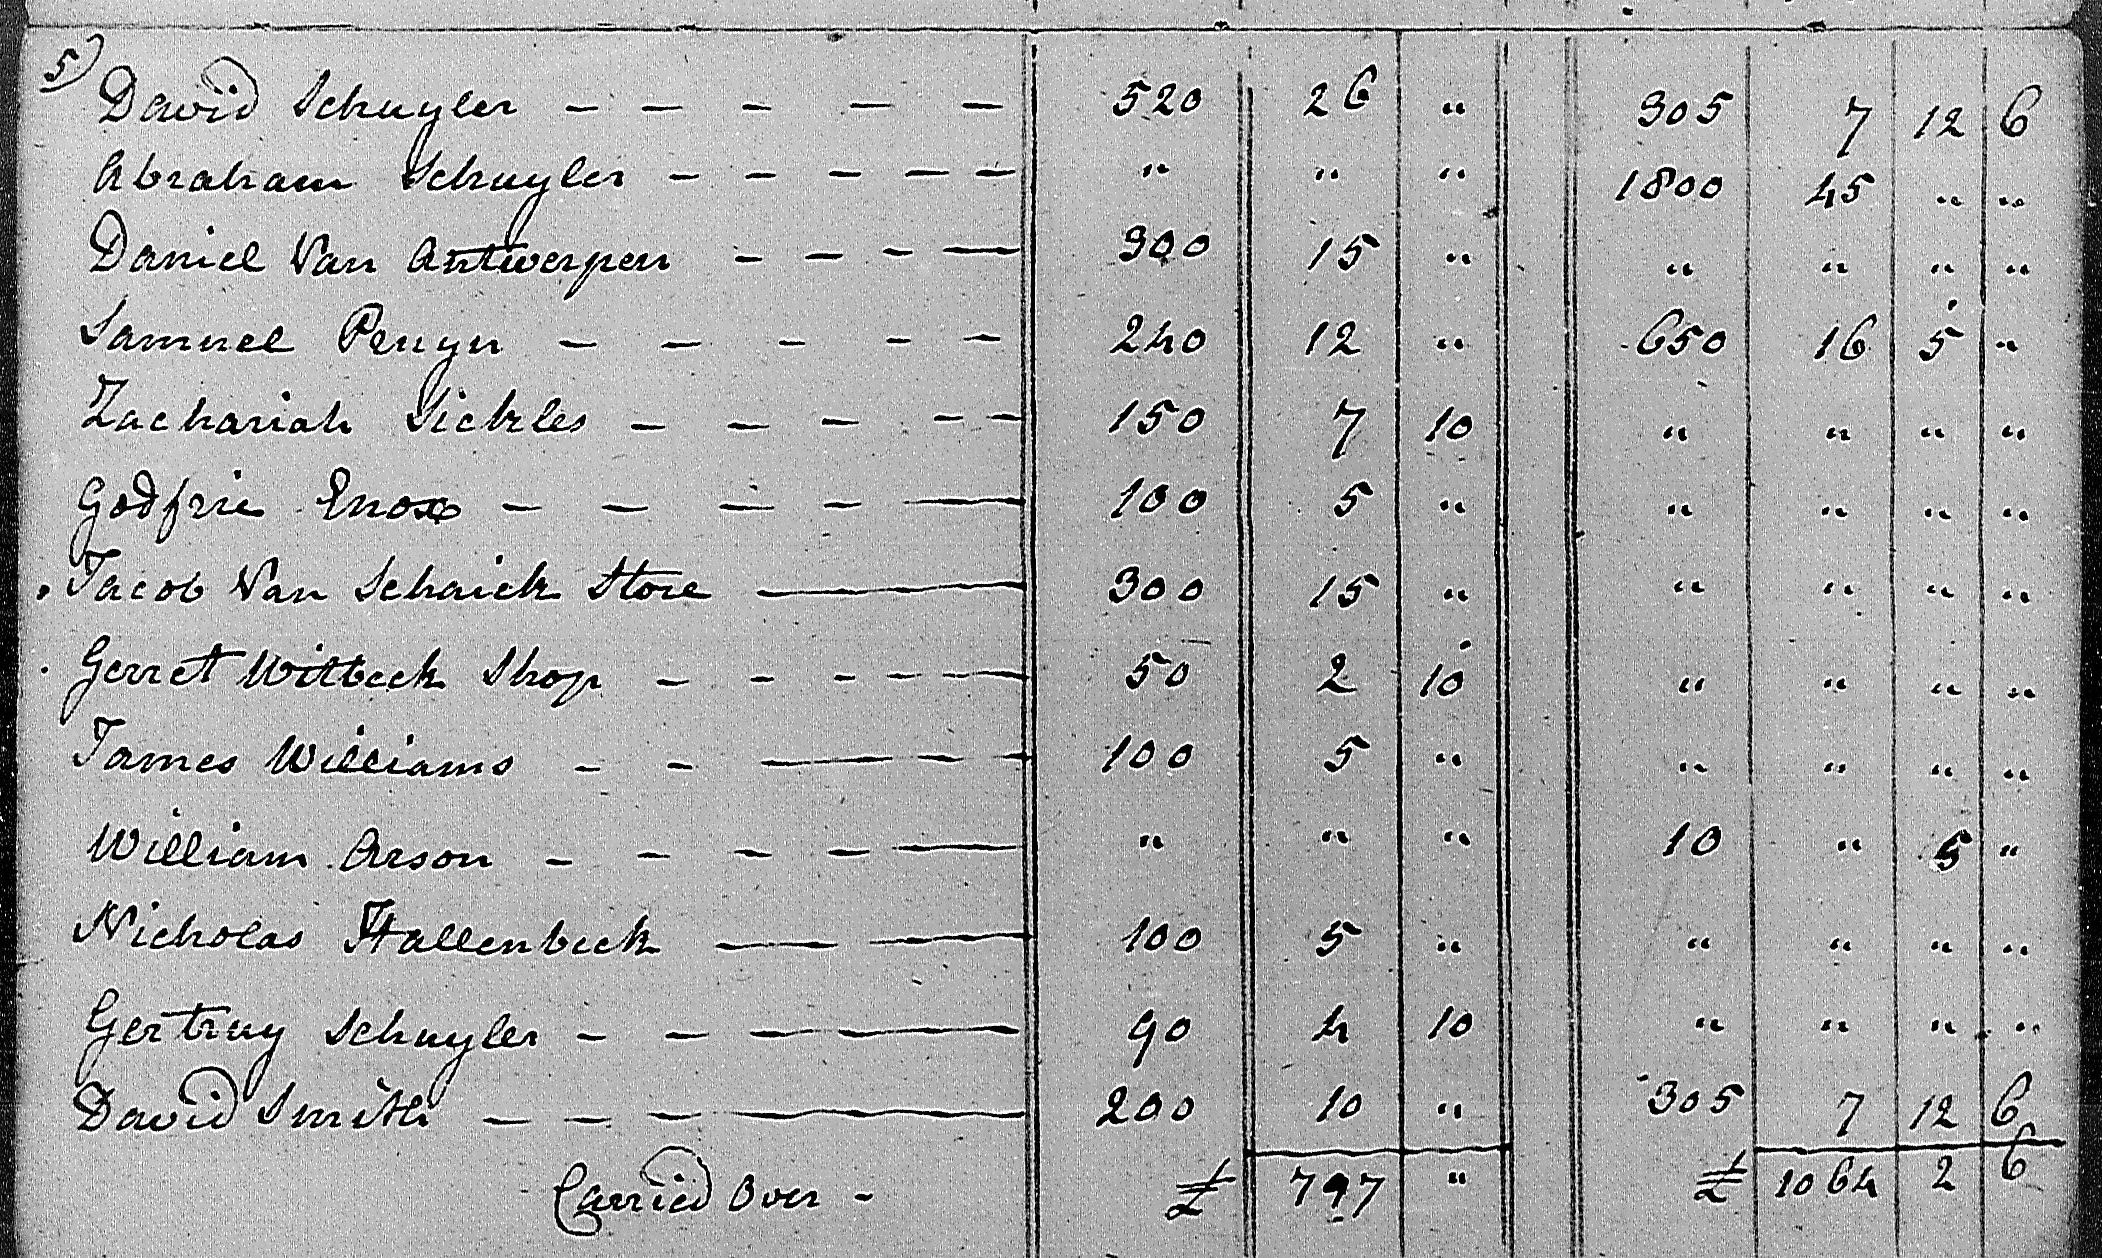 5)
David Schuyler — — — — — 520 26 " 305 7 12 6
Abraham Schuyler — — — — — " " " 1800 45 " "
Daniel Van Antwerpen — — — — 300 15 " " " " "
Samuel Pruyn — — — — — 240 12 " 650 16 5 "
Zachariah Sickles — — — — — 150 7 10 " " " "
Godfrie Enox — — — — — 100 5 " " " " "
Jacob Van Schaick Store — 300 15 " " " " "
Gerret Witbeck Shop — — — — — 50 2 10 " " " "
James Williams — — — — — 100 5 " " " " "
William Arson — — — — — " " " 10 " 5 "
Nicholas Hallenbeck — — 100 5 " " " " "
Gertruy Schuyler — — — — 90 4 10 " " " "
David Smith — — — — 200 10 " 305 7 12 6
Carried Over - £ 797 " £ 1064 2 6